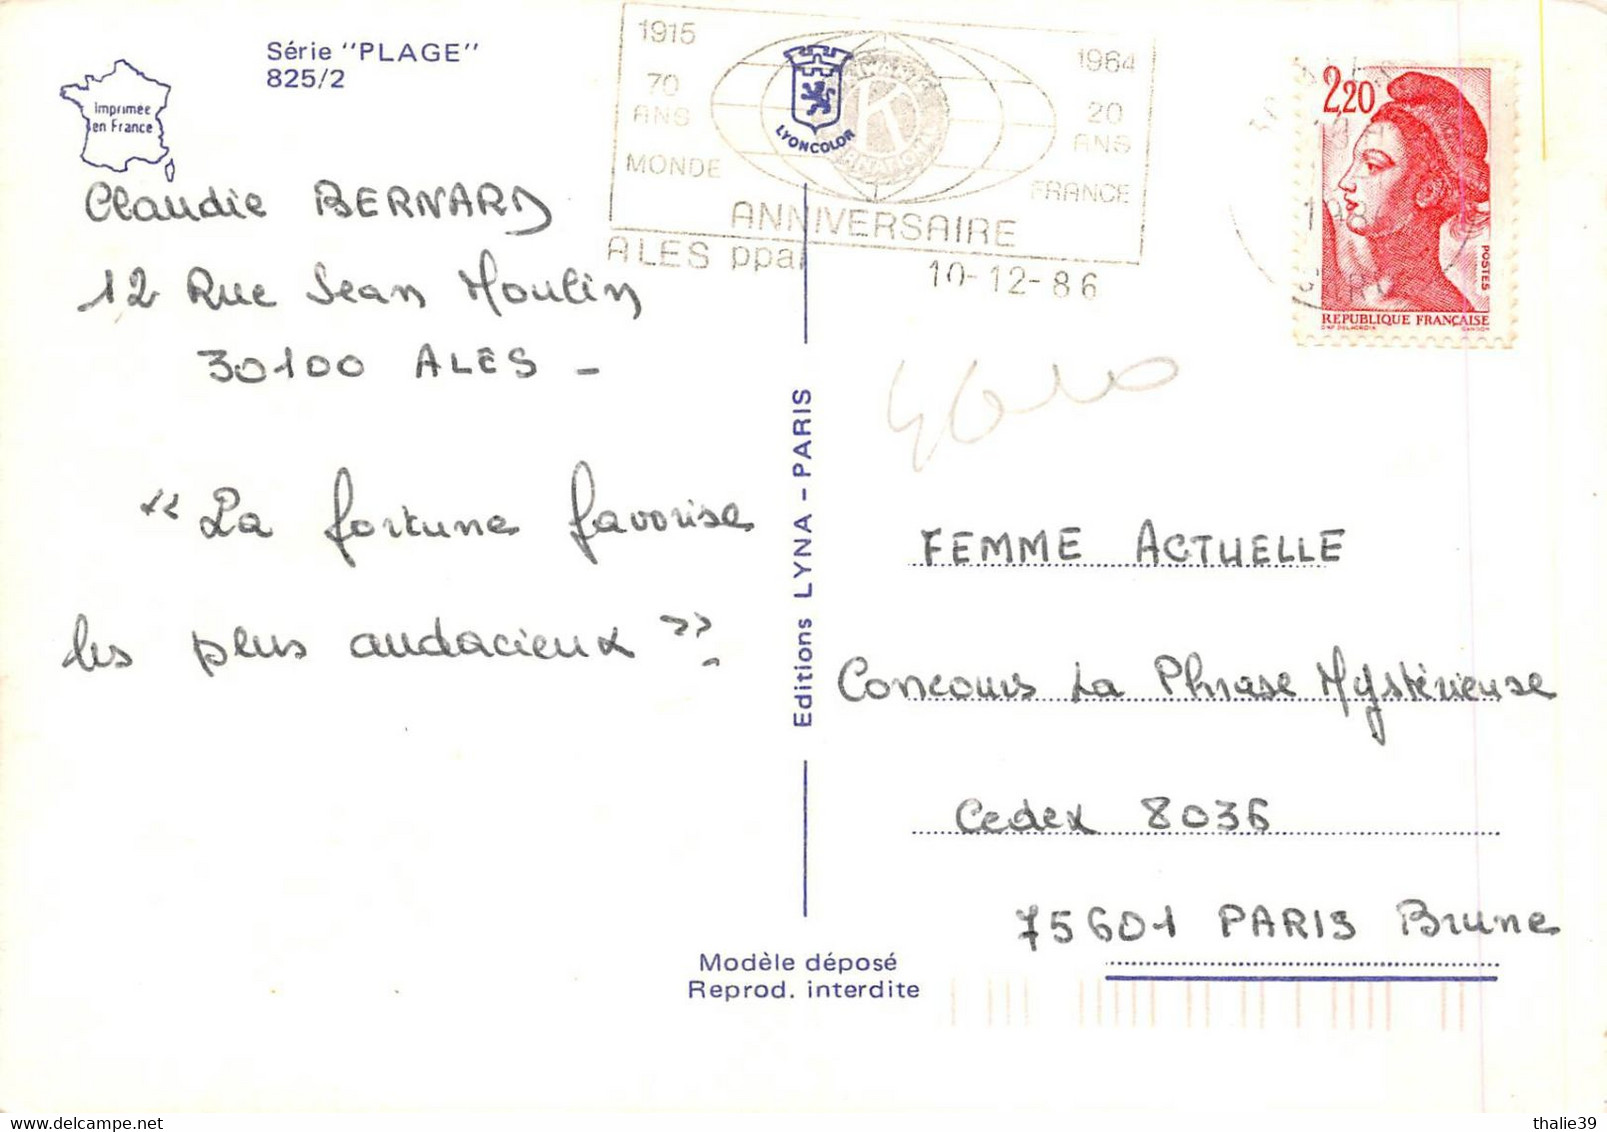 Série "PLAGE"
825/2
Imprimée
en France
Claudie BERNARD
12 Rue Jean Moulin
30100 ALES -
« La fortune favorise
les plus audacieux ».
1915
70
ANS
MONDE
1964
20
ANS
FRANCE
LYONCOLOR
K
ANNIVERSAIRE
ALES ppal
10-12-86
2,20
POSTES
REPUBLIQUE FRANÇAISE
D'AP DELACROIX
GANDON
Editions LYNA - PARIS
FEMME ACTUELLE
Concours La Phrase Mystérieuse
Cedex 8036
75601 PARIS Brune
Modèle déposé
Reprod. interdite
thalie39